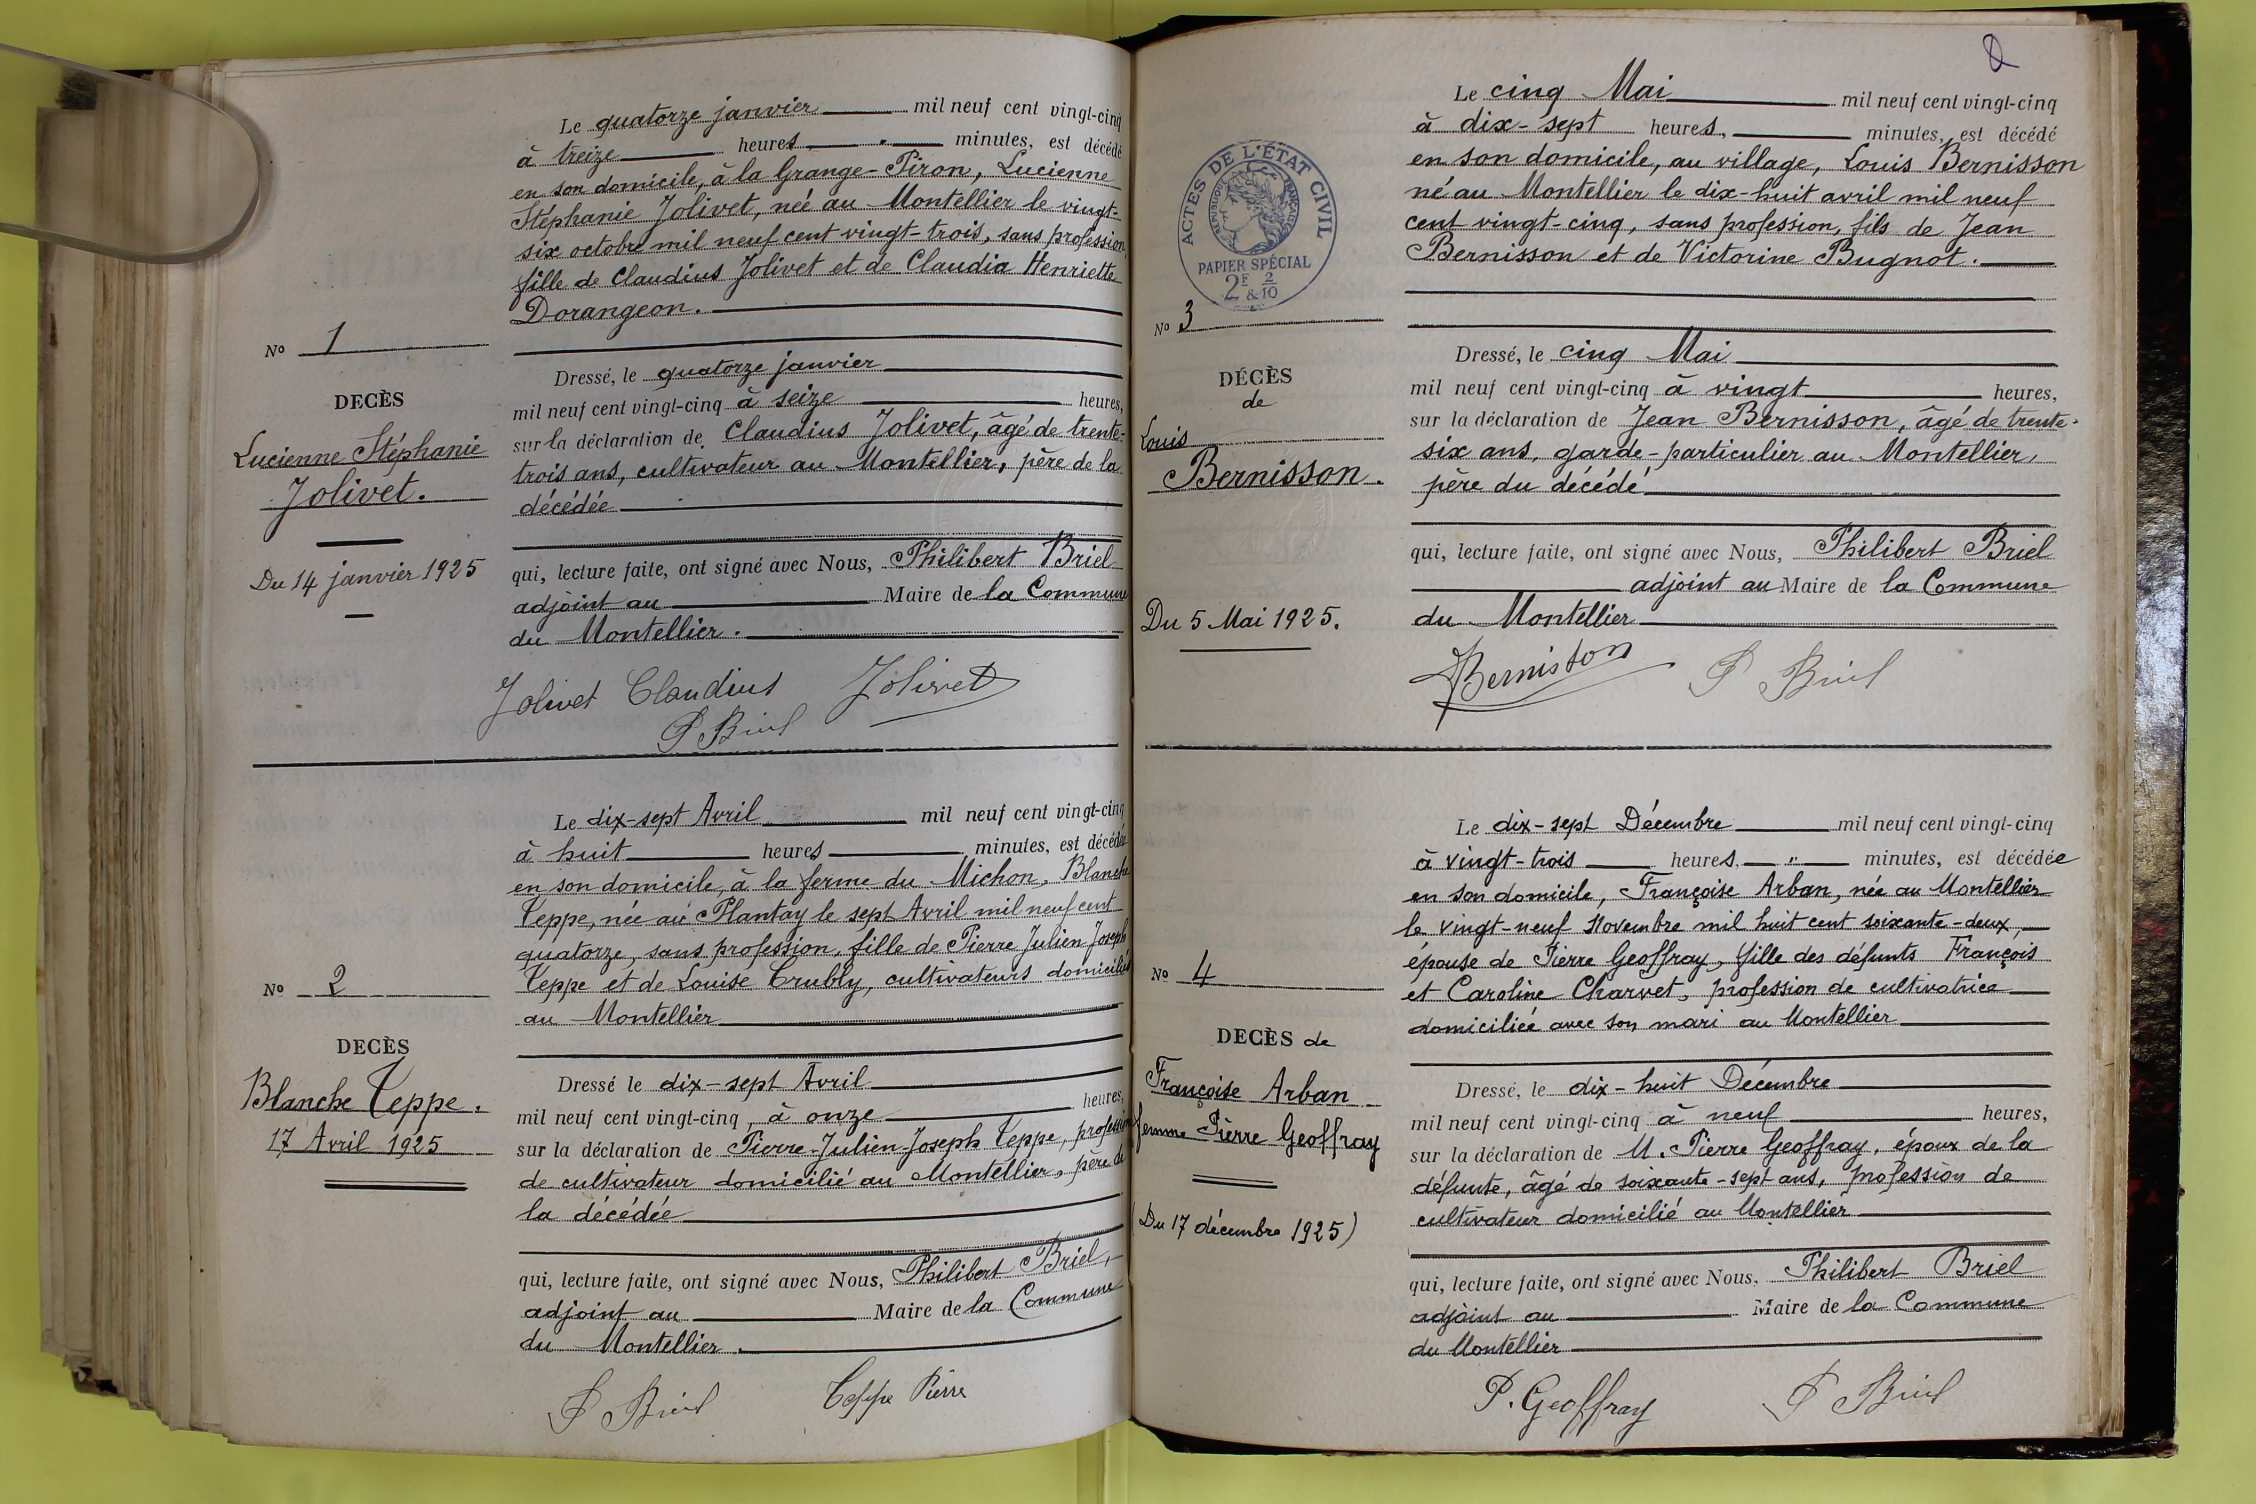 Le quatorze janvier mil neuf cent vingt-cinq
à treize heures " minutes, est décédé
en son domicile, à la Grange-Piron, Lucienne
Stéphanie Jolivet, née au Montellier le vingt-
six octobre mil neuf cent vingt-trois, sans profession,
fille de Claudius Jolivet et de Claudia Henriette
Dorangeon.
No 1
DECÈS
Lucienne Stéphanie
Jolivet.
Du 14 janvier 1925
Dressé, le quatorze janvier
mil neuf cent vingt-cinq à seize heures,
sur la déclaration de Claudius Jolivet, âgé de trente-
trois ans, cultivateur au Montellier, père de la
décédée
qui, lecture faite, ont signé avec Nous, Philibert Briel
adjoint au Maire de la Commune
du Montellier.
Jolivet Claudius Jolivet
P Briel
Le dix-sept Avril mil neuf cent vingt-cinq
à huit heures minutes, est décédée
en son domicile, à la ferme du Michon, Blanche
Teppe, née au Plantay le sept Avril mil neuf cent
quatorze, sans profession, fille de Pierre Julien Joseph
Teppe et de Louise Crubly, cultivateurs domiciliés
au Montellier
No 2
DECÈS
Blanche Teppe.
17 Avril 1925
Dressé le dix-sept Avril
mil neuf cent vingt-cinq, à onze heures,
sur la déclaration de Pierre-Julien-Joseph Teppe, profession
de cultivateur domicilié au Montellier, père de
la décédée
qui, lecture faite, ont signé avec Nous, Philibert Briel,
adjoint au Maire de la Commune
du Montellier.
P Briel Teppe Pierre
2
Le cinq Mai mil neuf cent vingt-cinq
à dix-sept heures, minutes, est décédé
en son domicile, au village, Louis Bernisson
né au Montellier le dix-huit avril mil neuf
cent vingt-cinq, sans profession, fils de Jean
Bernisson et de Victorine Bugnot.
ACTES DE L'ÉTAT CIVIL
RÉPUBLIQUE FRANÇAISE
PAPIER SPÉCIAL
2F & 2/10
No 3
DÉCÈS
de
Louis
Bernisson.
Du 5 Mai 1925.
Dressé, le cinq Mai
mil neuf cent vingt-cinq à vingt heures,
sur la déclaration de Jean Bernisson, âgé de trente-
six ans, garde-particulier au Montellier,
père du décédé
qui, lecture faite, ont signé avec Nous, Philibert Briel
adjoint au Maire de la Commune
du Montellier
Bernisson P Briel
Le dix-sept Décembre mil neuf cent vingt-cinq
à vingt-trois heures, " minutes, est décédée
en son domicile, Françoise Arban, née au Montellier
le vingt-neuf Novembre mil huit cent soixante-deux,
épouse de Pierre Geoffray, fille des défunts François
et Caroline Charvet, profession de cultivatrice
domiciliée avec son mari au Montellier
No 4
DECÈS de
Françoise Arban
femme Pierre Geoffray
(Du 17 décembre 1925)
Dressé, le dix-huit Décembre
mil neuf cent vingt-cinq à neuf heures,
sur la déclaration de M. Pierre Geoffray, époux de la
défunte, âgé de soixante-sept ans, profession de
cultivateur domicilié au Montellier
qui, lecture faite, ont signé avec Nous, Philibert Briel
adjoint au Maire de la Commune
du Montellier
P. Geoffray P Briel